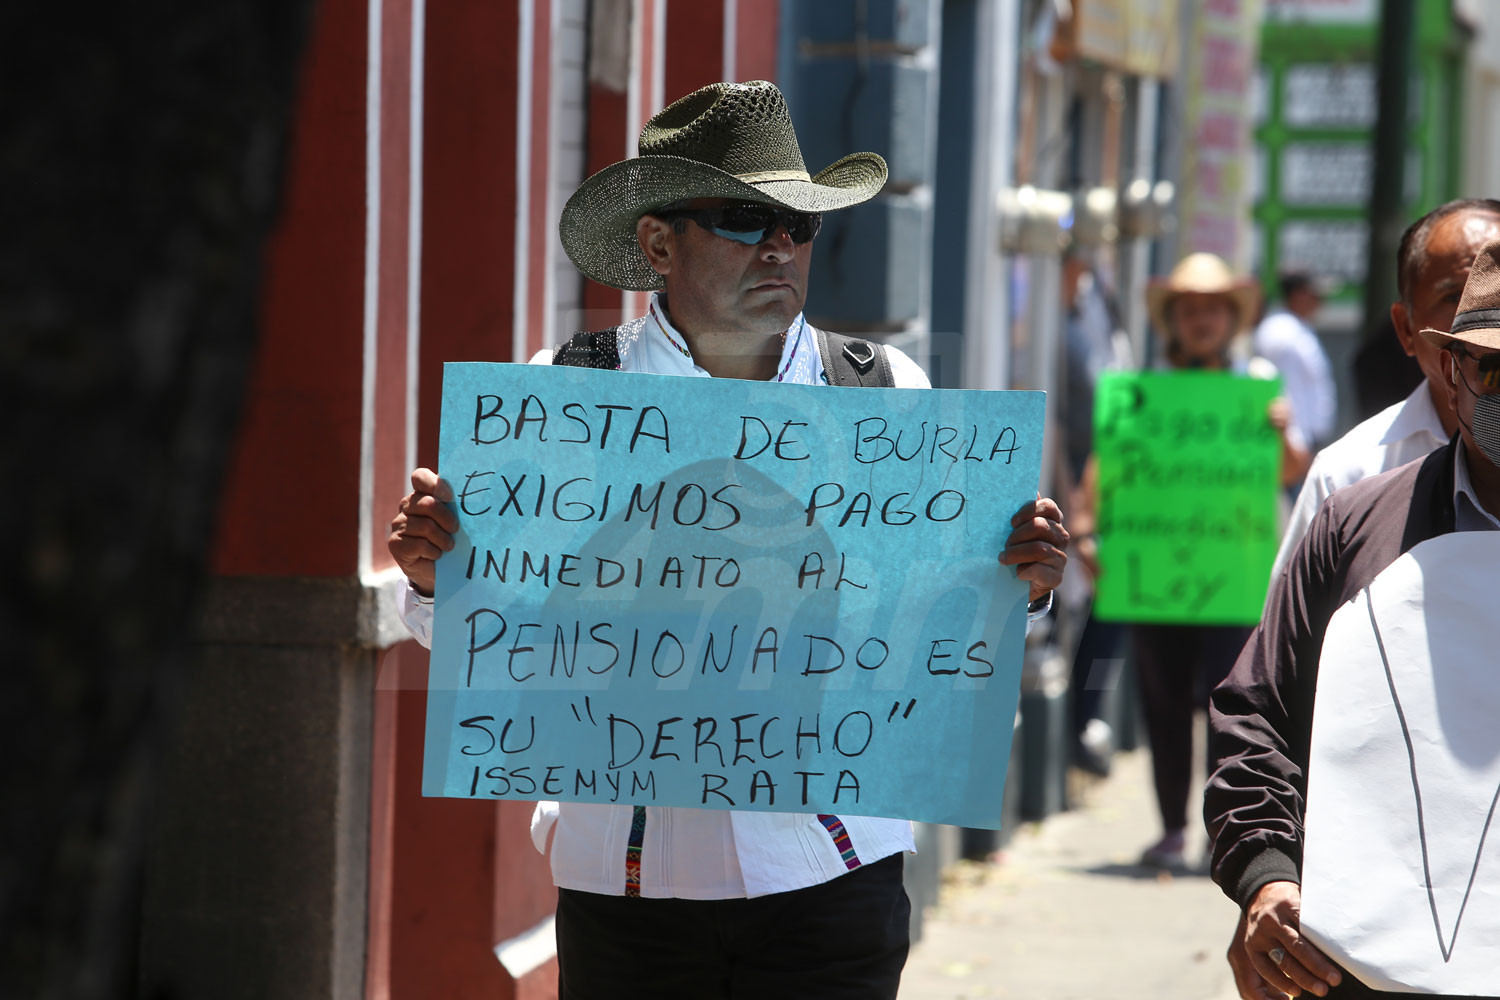 BASTA DE BURLA
EXIGIMOS PAGO
INMEDIATO AL
PENSIONADO ES
SU "DERECHO"
ISSEMYM RATA
Pago de
Pensión
Inmediata
x
Ley